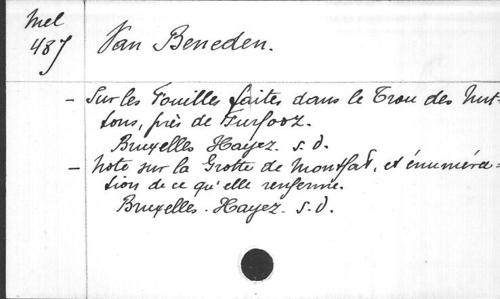 Mel
48J
Van Beneden.
- Sur les Fouilles faites dans le Trou des Nut-
tons, près de Furfooz.
Bruxelles Hayez. s.d.
- Note sur la Grotte de Montfat, et énuméra-
tion de ce qu'elle renferme.
Bruxelles. Hayez. s.d.